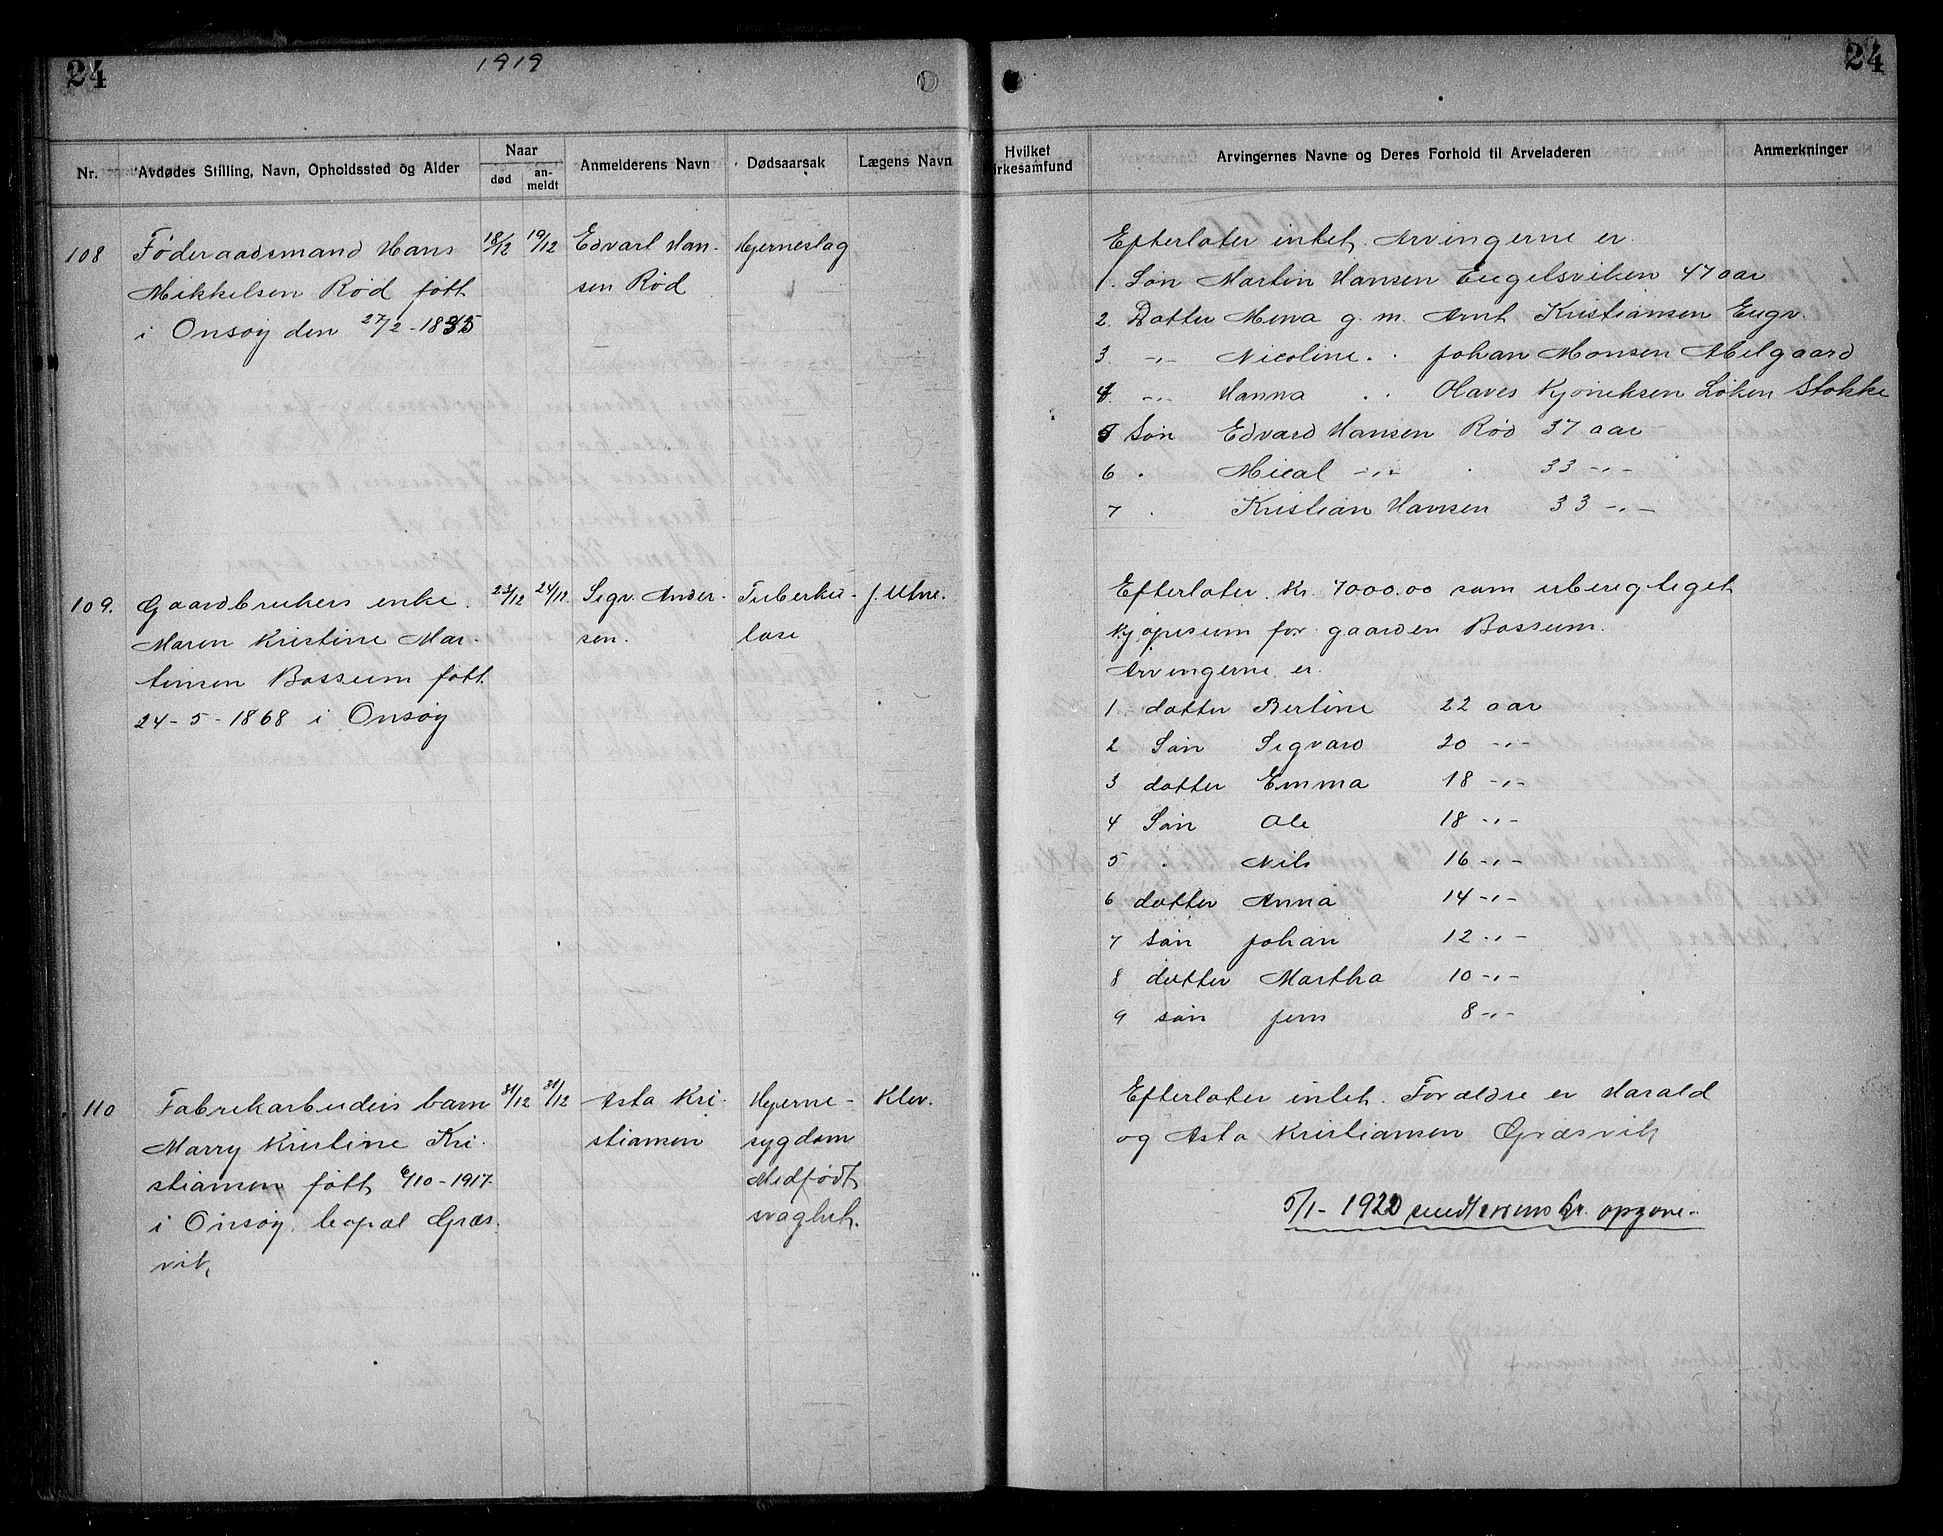 24
1919
24
Nr.
Avdødes Stilling, Navn, Opholdssted og Alder
Naar
død
an-
meldt
Anmelderens Navn
Dødsaarsak
Lægens Navn
Hvilket
irkesamfund
Arvingernes Navne og Deres Forhold til Arveladeren
Anmerkninger
108
Føderaadsmand Hans
Mikkelsen Rød født
i Onsøy den 27/2-1835
18/12
19/12
Edvart Han-
sen Rød
Hjerneslag
Efterlater intet. Arvingerne er
1. Søn Martin Hansen Engelsviken 47 aar
2. Datter Mina g. m. Arnt Kristiansen Engv.
3. -"- Nicoline . . Johan Monsen Melgaard
4. -"- Hanna . . Olaves Kjøniksen Løken Stokke
5 Søn Edvard Hansen Rød 37 aar
6 . Mical -"- . 33 -"-
7 . Kristian Hansen 33 -"-
109.
Gaardbrukers enke.
Maren Kristine Mar-
tinsen Bossum født
24-5-1868 i Onsøy
23/12
24/12.
Sigv. Ander-
sen.
Tuberku-
lose
J. Utne.
Efterlater. Kr. 7000.00 som uberigtiget
kjøpesum for gaarden Bossum.
Arvingerne er.
1 datter Bertine 22 aar
2 Søn Sigvard 20 -"-
3 datter Emma 18 -"-
4 Søn Ole 18 -"-
5 . Nils 16 -"-
6 datter Anna 14 -"-
7 søn Johan 12 -"-
8 datter Martha 10 -"-
9 søn Jens 8 -"-
110
Fabrikarbeiders barn
Marry Kristine Kri-
stiansen født 6/10-1917
i Onsøy. bopæl Græs-
vik
31/12
31/12
Asta Kri-
stiansen
Hjerne-
sygdom
Medfødt
svaghet.
Klev.
Efterlater intet. Forældre er Harald
og Asta Kristiansen Græsvik
5/1-1920 opgave.